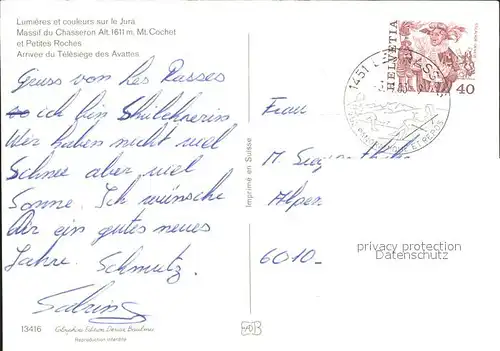 Lumières et couleurs sur le Jura
Massif du Chasseron Alt. 1611 m. Mt. Cochet
et Petites Roches
Arrivée du Télésiège des Avattes
Gruss von Les Rasses
ich bin Skilehrerin
Wir haben nicht viel
Schnee aber viel
Sonne. Ich wünsche
dir ein gutes neues
Jahre. Schmutz.
Sabrina
13416
Reproduction interdite
Imprimé en Suisse
HELVETIA
40
1451 LES RASSES
ET REPOS
Frau
M
Alpen
6010-
privacy protection
Datenschutz